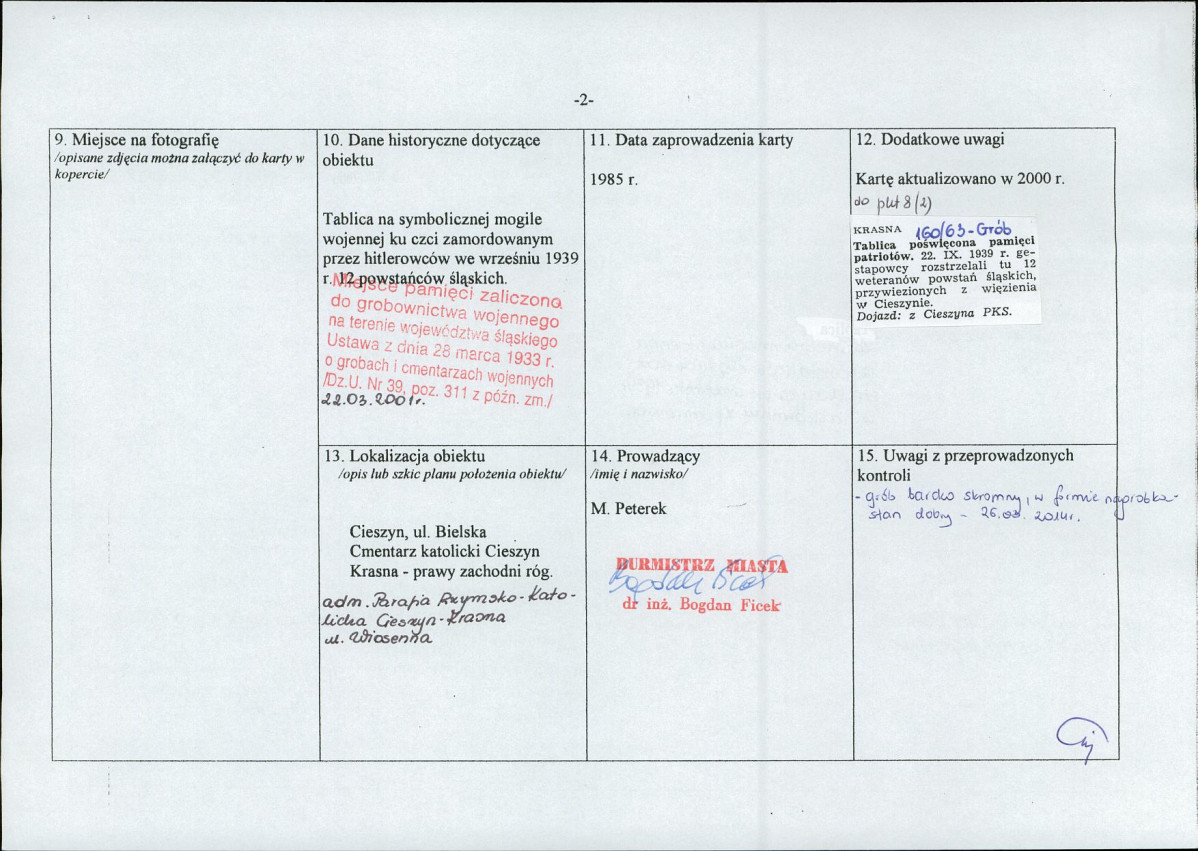 -2-
9. Miejsce na fotografię
/opisane zdjęcia można załączyć do karty w
kopercie/
10. Dane historyczne dotyczące
obiektu
Tablica na symbolicznej mogile
wojennej ku czci zamordowanym
przez hitlerowców we wrześniu 1939
r. 12 powstańców śląskich.
Miejsce pamięci zaliczono
do grobownictwa wojennego
na terenie województwa śląskiego
Ustawa z dnia 28 marca 1933 r.
o grobach i cmentarzach wojennych
/Dz.U. Nr 39, poz. 311 z późn. zm./
22.03.2001r.
11. Data zaprowadzenia karty
1985 r.
12. Dodatkowe uwagi
Kartę aktualizowano w 2000 r.
do pkt 8 (2)
KRASNA 160/63 - Grób
Tablica poświęcona pamięci
patriotów. 22. IX. 1939 r. ge-
stapowcy rozstrzelali tu 12
weteranów powstań śląskich,
przywiezionych z więzienia
w Cieszynie.
Dojazd: z Cieszyna PKS.
13. Lokalizacja obiektu
/opis lub szkic planu położenia obiektu/
Cieszyn, ul. Bielska
Cmentarz katolicki Cieszyn
Krasna - prawy zachodni róg.
adm. Parafia Rzymsko-Kato-
licka Cieszyn-Krasna
ul. Wiosenna
14. Prowadzący
/imię i nazwisko/
M. Peterek
BURMISTRZ MIASTA
Bogdan Ficek
dr inż. Bogdan Ficek
15. Uwagi z przeprowadzonych
kontroli
- grób bardzo skromny, w formie nagrobka-
stan dobry - 26.03. 2014r.